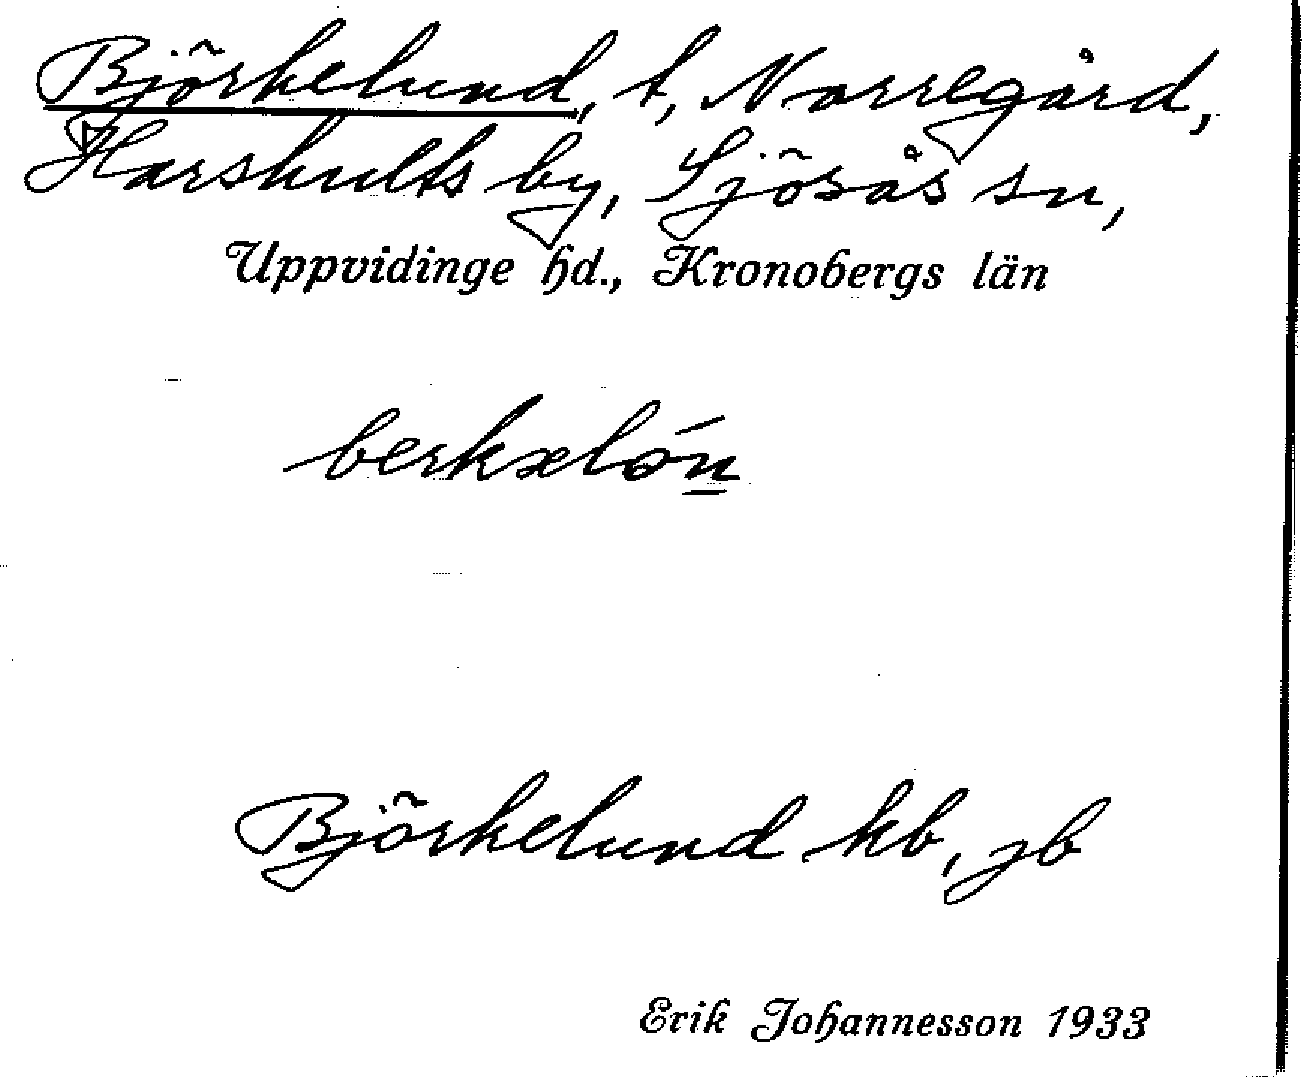 Björkelund, t, Norregård,
Harshults by, Sjösås sn,
Uppvidinge hd., Kronobergs län
berkxlón
Björkelund kb, jb
Erik Johannesson 1933